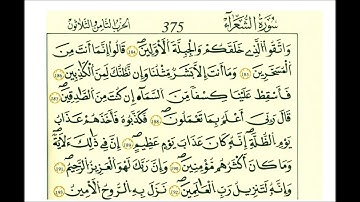 سُورَةُ الشُّعَرَاءِ 375 الحزب الثامن الثلاثون
وَاتَّقُوا الَّذِي خَلَقَكُمْ وَالْجِبِلَّةَ الْأَوَّلِينَ (184) قَالُوا إِنَّمَا أَنتَ مِنَ
الْمُسَحَّرِينَ (185) وَمَا أَنتَ إِلَّا بَشَرٌ مِّثْلُنَا وَإِن نَّظُنُّكَ لَمِنَ الْكَاذِبِينَ (186)
فَأَسْقِطْ عَلَيْنَا كِسْفًا مِّنَ السَّمَاءِ إِن كُنتَ مِنَ الصَّادِقِينَ (187)
قَالَ رَبِّي أَعْلَمُ بِمَا تَعْمَلُونَ (188) فَكَذَّبُوهُ فَأَخَذَهُمْ عَذَابُ
يَوْمِ الظُّلَّةِ إِنَّهُ كَانَ عَذَابَ يَوْمٍ عَظِيمٍ (189) إِنَّ فِي ذَٰلِكَ لَآيَةً
وَمَا كَانَ أَكْثَرُهُم مُّؤْمِنِينَ (190) وَإِنَّ رَبَّكَ لَهُوَ الْعَزِيزُ الرَّحِيمُ (191)
وَإِنَّهُ لَتَنزِيلُ رَبِّ الْعَالَمِينَ (192) نَزَلَ بِهِ الرُّوحُ الْأَمِينُ (193)